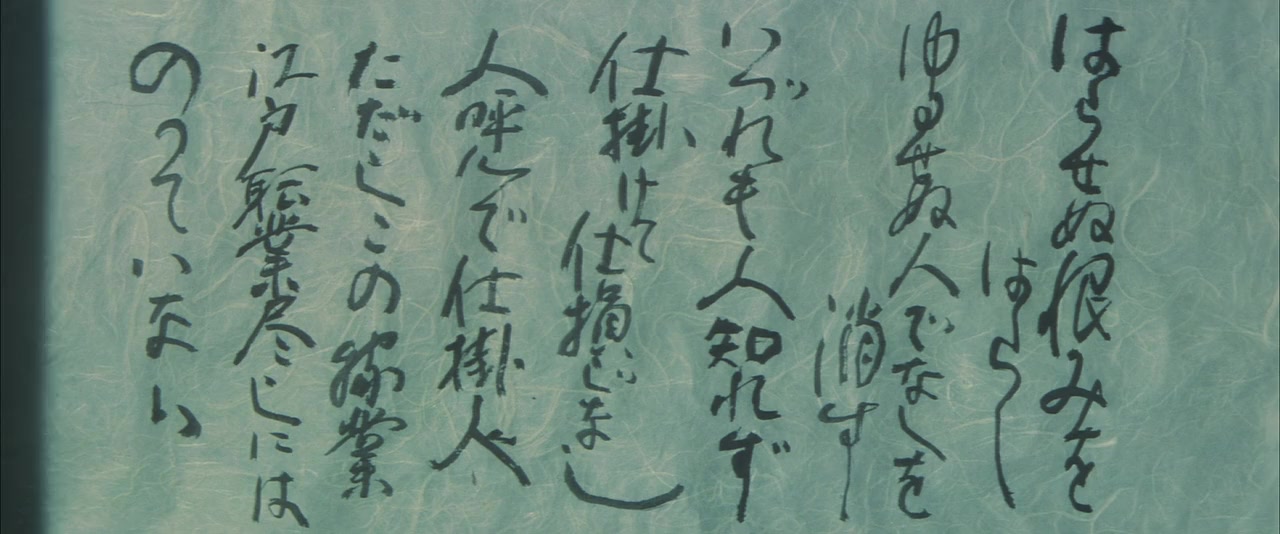 はらせぬ恨みを
はらし
ゆるせぬ人でなしを
消す
いづれも人知れず
仕掛けて
仕損じなし
人呼んで仕掛人
ただしこの稼業
江戸職業尽しには
のっていない